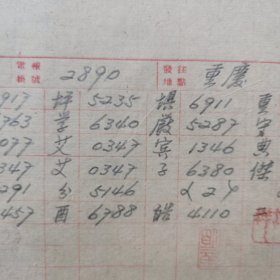 電報掛號 2890 發往地點 重慶
917 坪 5235 堪 6911 貢
763 学 6340 廢 5287 字
077 艾 0347 宾 1346 典
347 艾 0347 子 6380 傑
291 分 5146
457 酉 6788 皓 4110